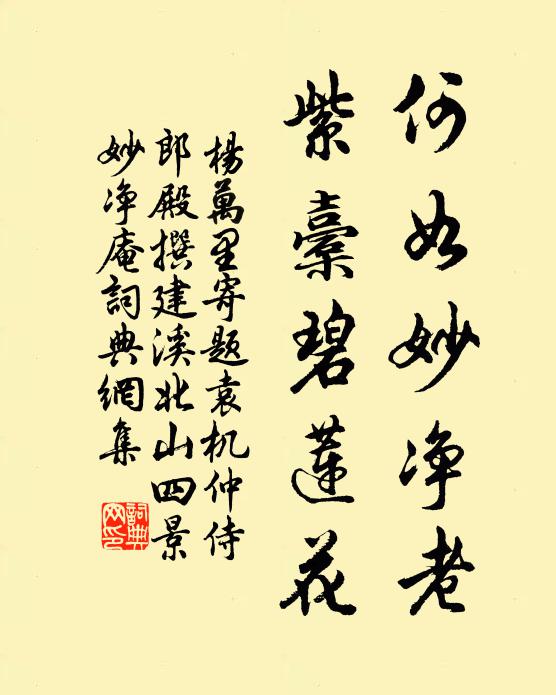 何如妙净老
紫橐碧莲花
楊萬里寄题袁机仲侍
郎殿撰建溪北山四景
妙净庵詞典網集
詞典
网印